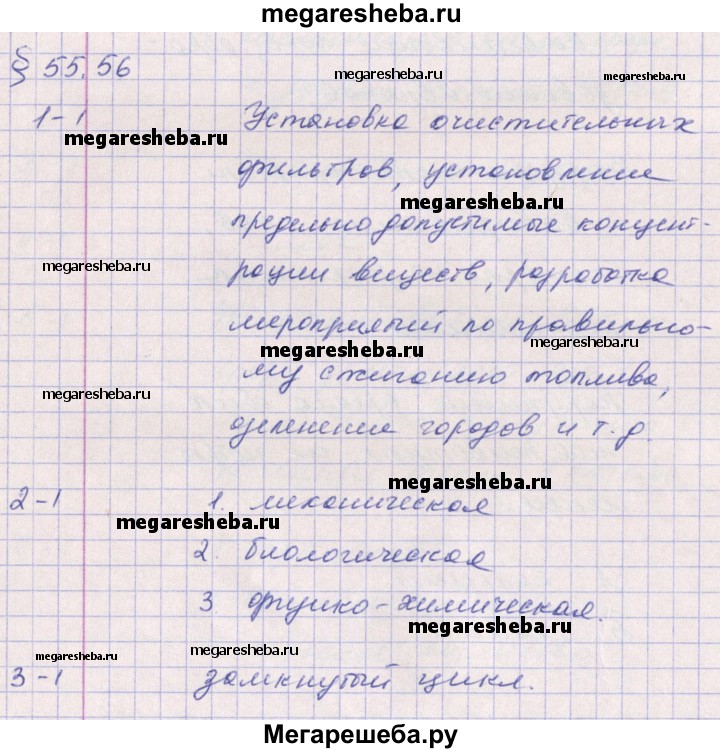 megaresheba.ru
§ 55, 56
megaresheba.ru
megaresheba.ru
1-1 Установка очистительных
megaresheba.ru
фильтров, установление
megaresheba.ru
предельно допустимые концент-
megaresheba.ru
рации веществ, разработка
мероприятий по правильно-
megaresheba.ru
megaresheba.ru
му сжиганию топлива,
megaresheba.ru
озеленение городов и т.д.
megaresheba.ru
2-1 1. механическая
megaresheba.ru
2. биологическая
3. физико-химическая.
megaresheba.ru
megaresheba.ru
megaresheba.ru
3-1 замкнутый цикл.
Мегарешеба.ру